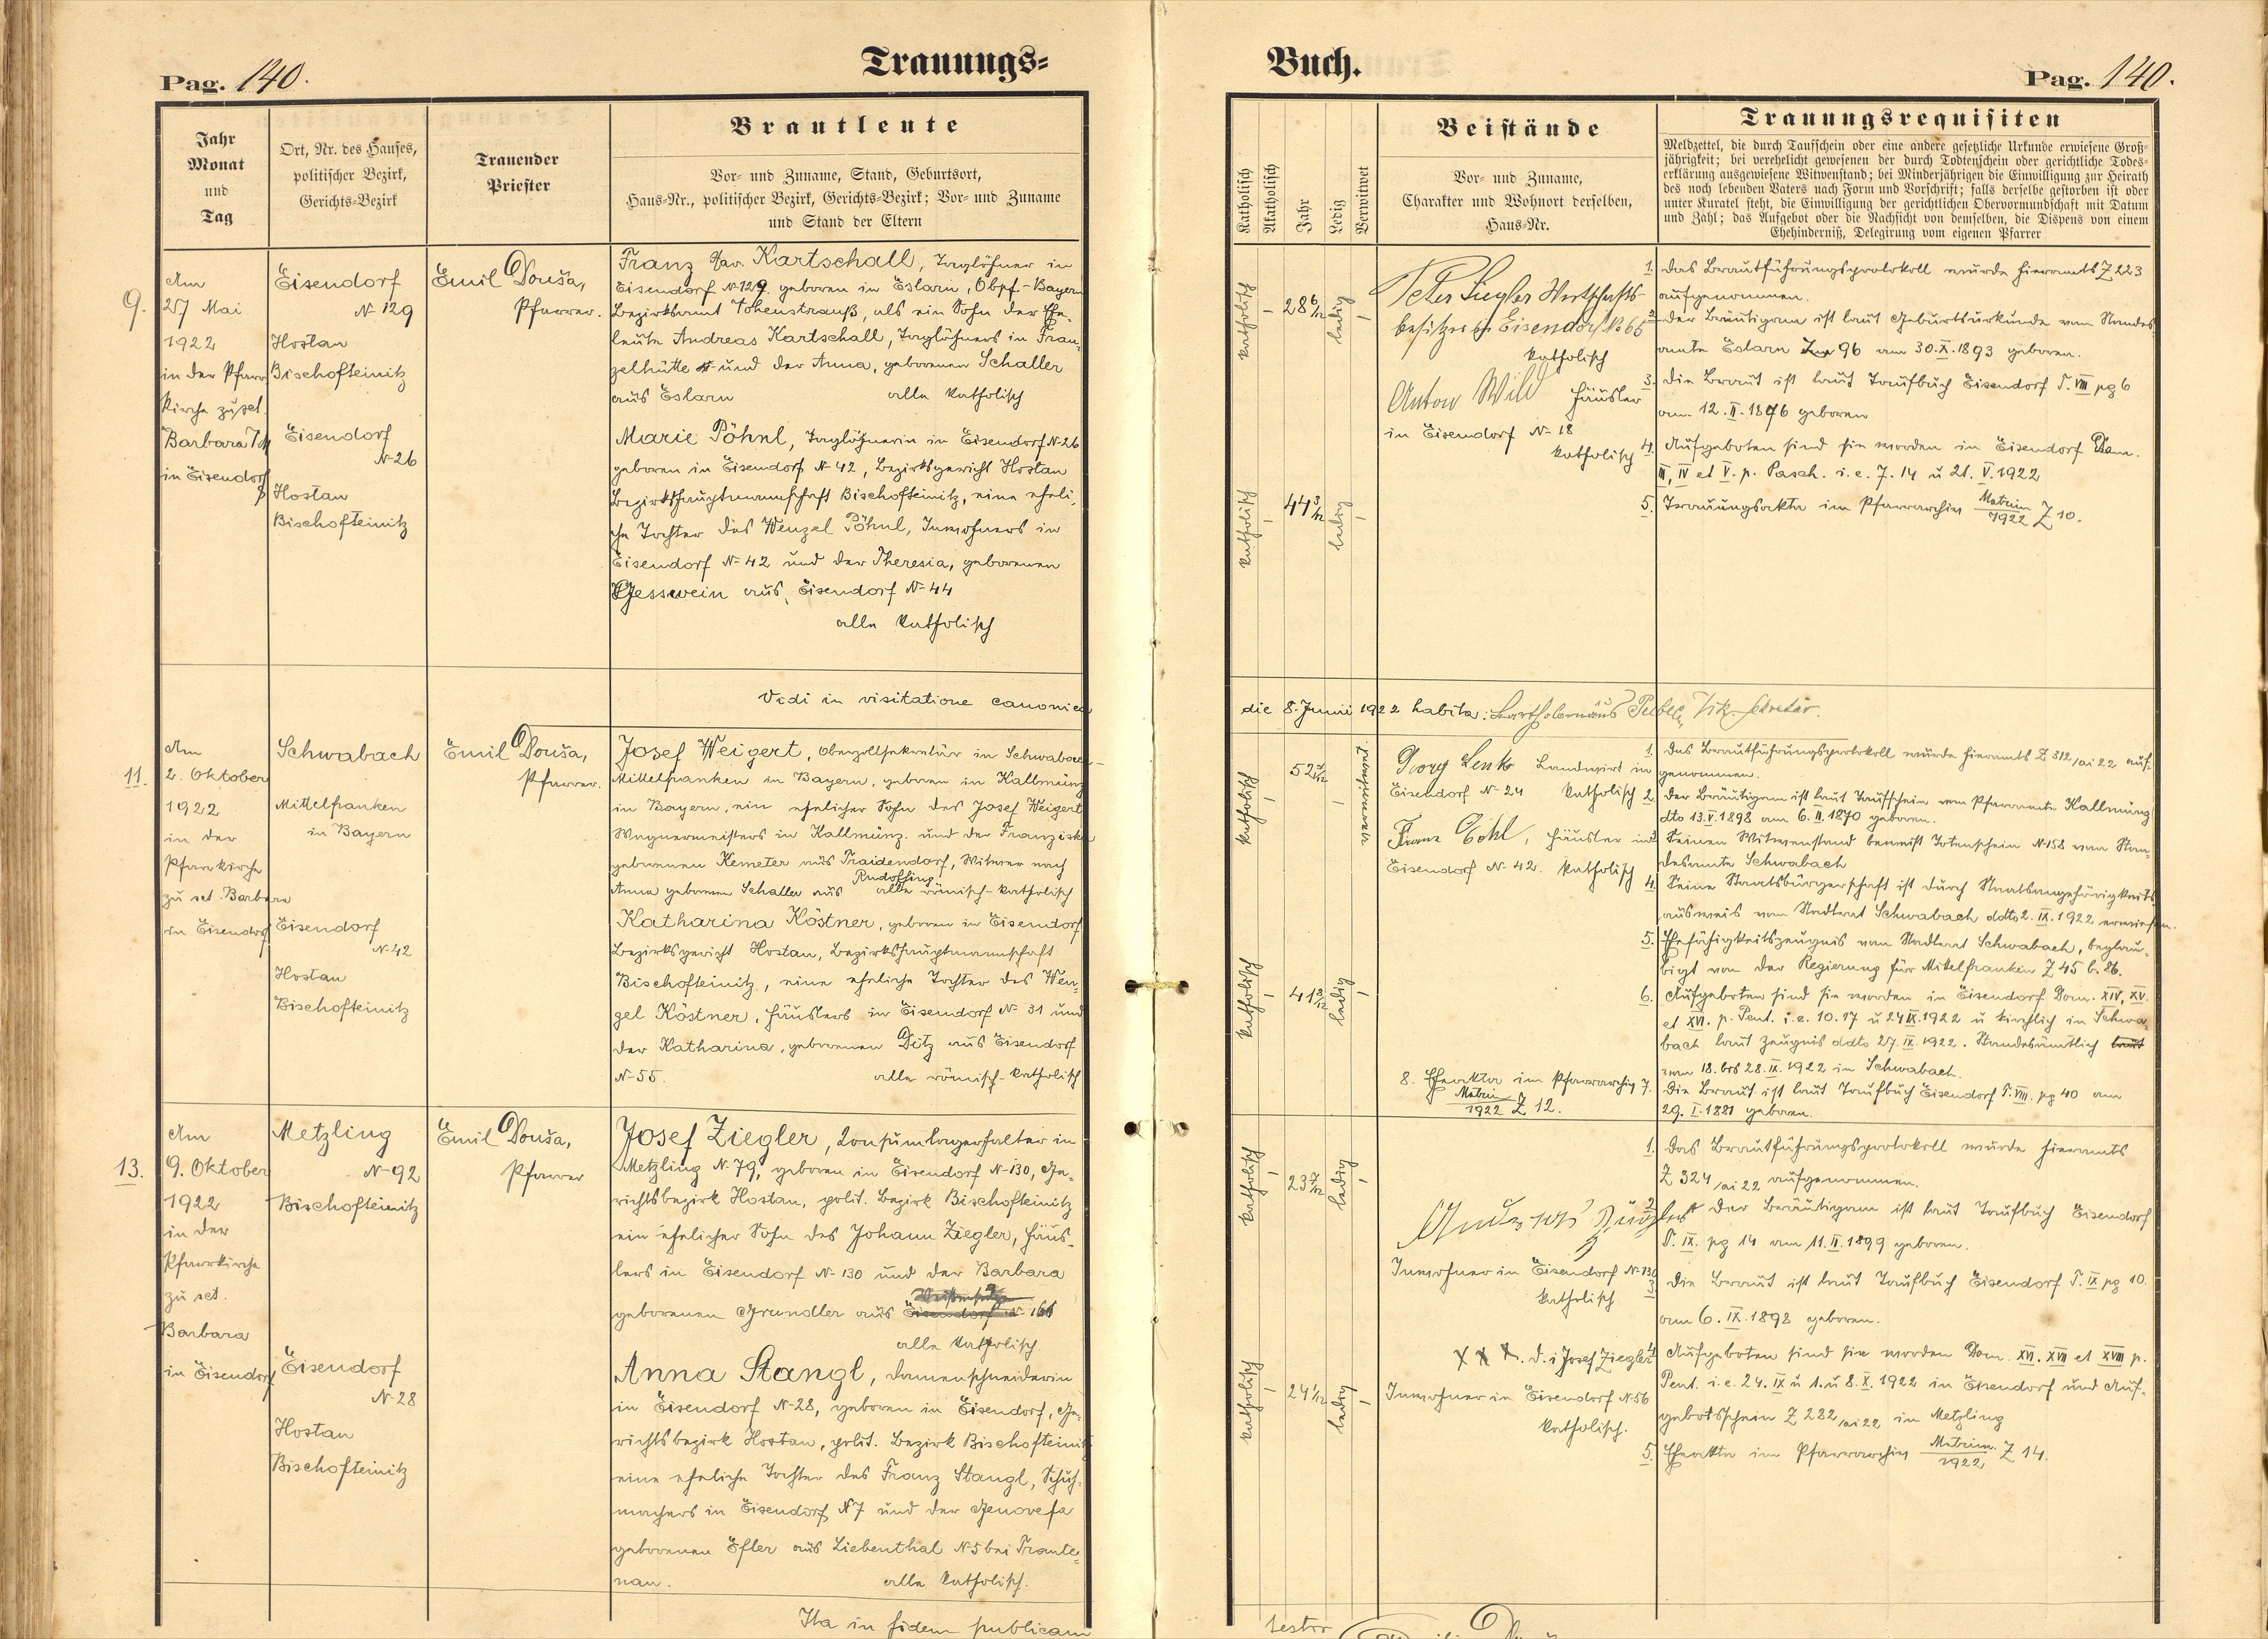 Pag. 140.
Trauungs=
Jahr
Monat
und
Tag
Ort, Nr. des Hauses,
politischer Bezirk,
Gerichts=Bezirk
Trauender
Priester
Brautleute
Vor= und Zuname, Stand, Geburtsort,
Haus=Nr., politischer Bezirk, Gerichts=Bezirk; Vor= und Zuname
und Stand der Eltern
9.
Am
27 Mai
1922
in der Pfarr
kirche zu sct.
Barbara
in Eisendorf
Eisendorf
N- 129
Hostau
Bischofteinitz
Eisendorf
N-26
Hostau
Bischofteinitz
Emil Douša,
Pfarrer.
Franz Xav. Kartschall, Taglöhner in
Eisendorf N-129. geboren in Eslarn, Obpf.-Bayern
Bezirksamt Vohenstrauß, als ein Sohn der Ehe-
leute Andreas Kartschall, Taglöhners in Fran-
zelhütte und der Anna, geborenen Schaller
aus Eslarn alle katholisch
Marie Pöhnl, Taglöhnerin in Eisendorf N-26
geboren in Eisendorf N-42, Bezirksgericht Hostau
Bezirkshauptmannschaft Bischofteinitz, eine eheli-
che Tochter des Wenzel Pöhnl, Inwohners in
Eisendorf N-42 und der Theresia, geborenen
Gesswein aus Eisendorf N-44
alle katholisch
Vidi in visitatione canonica
11.
Am
2. Oktober
1922
in der
Pfarrkirche
zu sct. Barbara
in Eisendorf
Schwabach
Mittelfranken
in Bayern
Eisendorf
N-42
Hostau
Bischofteinitz
Emil Douša,
Pfarrer.
Josef Weigert, Oberzollsekretär in Schwabach-
Mittelfranken in Bayern, geboren in Kallmünz
in Bayern, ein ehelicher Sohn des Josef Weigert
Wagnermeisters in Kallmünz. und der Franziska
geborenen Kemeter aus Traidendorf, Witwer nach
Anna geborenen Schaller aus Rudolfing alle römisch-katholisch
Katharina Köstner, geboren in Eisendorf
Bezirksgericht Hostau, Bezirkshauptmannschaft
Bischofteinitz, eine eheliche Tochter des Wen-
zel Köstner, Häuslers in Eisendorf N- 31 und
der Katharina, geborenen Ditz aus Eisendorf
N-55. alle römisch-katholisch
13.
Am
9. Oktober
1922
in der
Pfarrkirche
zu sct.
Barbara
in Eisendorf
Metzling
N-92
Bischofteinitz
Eisendorf
N-28
Hostau
Bischofteinitz
Emil Douša,
Pfarrer
Josef Ziegler, Konsumlagerhalter in
Metzling N-79, geboren in Eisendorf N-130, Ge-
richtsbezirk Hostau, polit. Bezirk Bischofteinitz
ein ehelicher Sohn des Johann Ziegler, Häus-
lers in Eisendorf N-130 und der Barbara
geborenen Grundler aus Eisendorf N-
alle katholisch.
Anna Stangl, Damenschneiderin
in Eisendorf N-28, geboren in Eisendorf, Ge-
richtsbezirk Hostau, polit. Bezirk Bischofteinitz
eine eheliche Tochter des Franz Stangl, Schuh-
machers in Eisendorf N7 und der Genovefa
geborenen Efler aus Liebenthal N5 bei Traute-
nau. alle katholisch.
Ita in fidem publicam
Buch.
Pag. 140.
Katholisch
Akatholisch
Jahr
Ledig
Verwitwet
Beistände
Vor= und Zuname,
Charakter und Wohnort derselben,
Haus=Nr.
Trauungsrequisiten
Meldzettel, die durch Taufschein oder eine andere gesetzliche Urkunde erwiesene Groß=
jährigkeit; bei verehelicht gewesenen der durch Todtenschein oder gerichtliche Todes=
erklärung ausgewiesene Witwenstand; bei Minderjährigen die Einwilligung zur Heirath
des noch lebenden Vaters nach Form und Vorschrift; falls derselbe gestorben ist oder
unter Kuratel steht, die Einwilligung der gerichtlichen Obervormundschaft mit Datum
und Zahl; das Aufgebot oder die Nachsicht von demselben, die Dispens von einem
Ehehinderniß, Delegirung vom eigenen Pfarrer
katholisch
28 6/12
ledig
katholisch
44 3/12
ledig
Peter Ziegler Wirtschafts-
besitzer in Eisendorf No 65
katholisch
Anton Wild Häusler
in Eisendorf N- 18
katholisch
1. Das Brautführungsprotokoll wurde hieramts Z 223
aufgenommen.
2. Der Bräutigam ist laut Geburtsurkunde vom Standes
amte Eslarn 96 am 30.X.1893 geboren.
3. Die Braut ist laut Taufbuch Eisendorf T. VIII pg 6
am 12.II.1876 geboren
4. Aufgeboten sind sie worden in Eisendorf Dom.
III, IV et V. p. Pasch. i. e. 7. 14 u 21. V.1922
5. Trauungsakta im Pfarrarchiv Matrim/1922 Z 10.
die 8. Junii 1922 habita: Bartholomäus Vik. Sekretär.
katholisch
52
verwitwet
katholisch
41 8/12
ledig
Georg Lenk Landwirt in
Eisendorf N- 24 katholisch
Franz Häusler in
Eisendorf N- 42. katholisch
8. Eheakta im Pfarrarchiv
Matri/1922 Z 12.
1. Das Brautführungsprotokoll wurde hieramts Z 312/ai 22 auf-
genommen.
2. Der Bräutigam ist laut Taufschein vom Pfarramte Kallmünz
dto 13.V.1898 am 6.II.1870 geboren.
3. Seinen Witwenstand beweist Totenschein N-158 vom Stan-
desamte Schwabach
4. Seine Staatsbürgerschaft ist durch Staatsangehörigkeits
ausweis vom Stadtrat Schwabach ddto 2.IX.1922 erwiesen.
5. Ehefähigkeitszeugnis vom Stadtrat Schwabach, beglau-
bigt von der Regierung für Mittelfranken Z 45 b. 86.
6. Aufgeboten sind sie worden in Eisendorf Dom. XIV, XV.
et XVI. p. Pent. i. e. 10. 17 u 24 IX.1922 u kirchlich in Schwa-
bach laut Zeugnis ddto 27.IX.1922. Standesämtlich laut
vom 18. bis 28.IX.1922 in Schwabach.
7. Die Braut ist laut Taufbuch Eisendorf T. VIII. pg 40 am
29.I.1881 geboren.
katholisch
23 7/12
ledig
katholisch
24 1/12
ledig
Andreas Ziegler
Inwohner in Eisendorf N-130
katholisch
X X X. d. i Josef Ziegler
Inwohner in Eisendorf N-56
katholisch.
1. Das Brautführungsprotokoll wurde hieramts
Z 324/ai 22 aufgenommen.
2. Der Bräutigam ist laut Taufbuch Eisendorf
T. IX. pg 14 am 11.II.1899 geboren.
3. Die Braut ist laut Taufbuch Eisendorf T. IX pg 10.
am 6.IX.1898 geboren.
4. Aufgeboten sind sie worden Dom. XVI. XVII et XVIII p.
Pent. i. e. 24.IX u 1. u 8.X.1922 in Eisendorf und Auf-
gebotsschein Z 282/ai 22 in Metzling
5. Eheakta im Pfarrarchiv Matrim./1922 Z 14.
testor